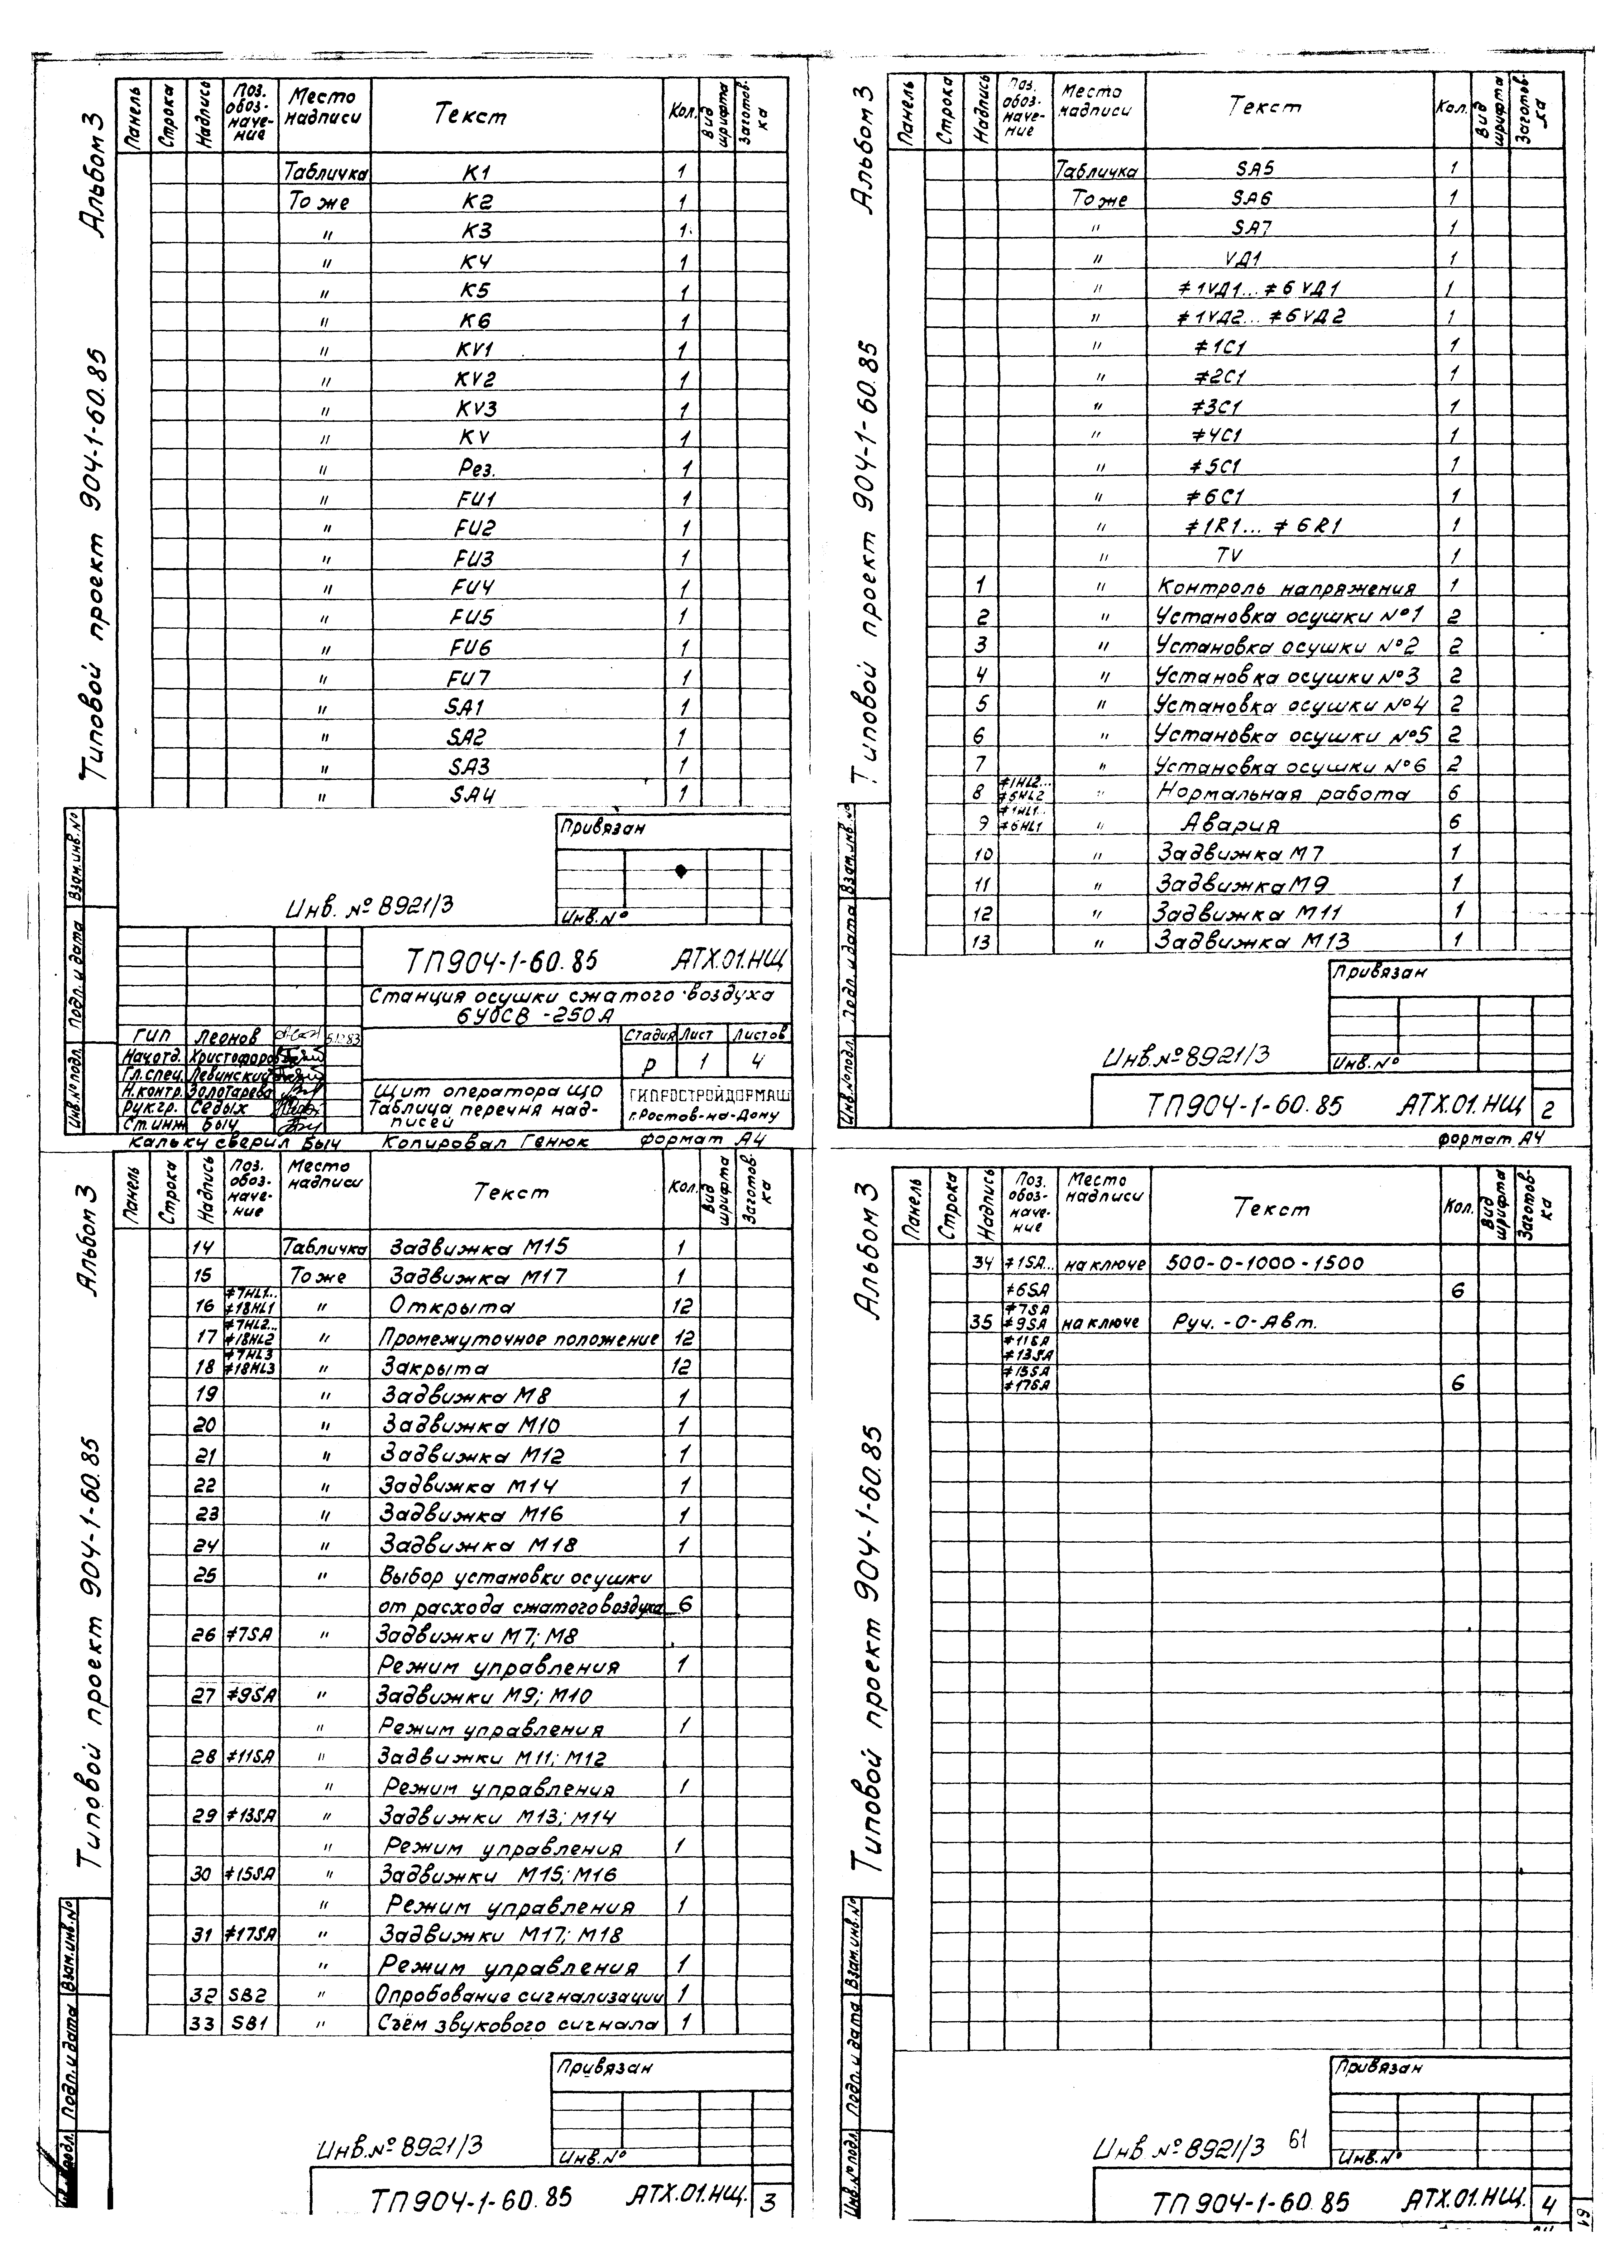 Альбом 3
Типовой проект 904-1-60.85
Панель Строка Надпись Поз. обоз-наче-ние Место надписи Текст Кол. Вид шрифта Заготов-ка
Табличка K1 1
То же K2 1
" K3 1
" K4 1
" K5 1
" K6 1
" KV1 1
" KV2 1
" KV3 1
" KV 1
" Рез. 1
" FU1 1
" FU2 1
" FU3 1
" FU4 1
" FU5 1
" FU6 1
" FU7 1
" SA1 1
" SA2 1
" SA3 1
" SA4 1
Привязан
Инв. № 8921/3
Инв.№
Взам.инв.№
Подп. и дата
Инв.№ подл.
ТП904-1-60.85 АТХ.01.НЩ
Станция осушки сжатого воздуха
6УОСВ-250А
ГИП Леонов
Нач.отд. Христофоров
Гл.спец. Левинский
Н.контр. Золотарева
Рук.гр. Седых
Ст.инж Быч
Стадия Лист Листов
Р 1 4
Щит оператора ЩО
Таблица перечня над-
писей
ГИПРОСТРОЙДОРМАШ
г.Ростов-на-Дону
Кальку сверил Быч Копировал Генюк формат А4
Альбом 3
Типовой проект 904-1-60.85
Панель Строка Надпись Поз. обоз-наче-ние Место надписи Текст Кол. Вид шрифта Заготов-ка
Табличка SA5 1
То же SA6 1
" SA7 1
" VД1 1
" ≠1VД1...≠6VД1 1
" ≠1VД2...≠6VД2 1
" ≠1C1 1
" ≠2C1 1
" ≠3C1 1
" ≠4C1 1
" ≠5C1 1
" ≠6C1 1
" ≠1R1...≠6R1 1
" TV 1
1 " Контроль напряжения 1
2 " Установка осушки №1 2
3 " Установка осушки №2 2
4 " Установка осушки №3 2
5 " Установка осушки №4 2
6 " Установка осушки №5 2
7 " Установка осушки №6 2
8 ≠1HL2... " Нормальная работа 6
9 ≠1HL1... ≠6HL1 " Авария 6
10 " Задвижка М7 1
11 " Задвижка М9 1
12 " Задвижка М11 1
13 " Задвижка М13 1
Привязан
Инв.№8921/3
Инв.№
Взам.инв.№
Подп. и дата
Инв.№ подл.
ТП904-1-60.85 АТХ.01.НЩ 2
формат А4
Альбом 3
Типовой проект 904-1-60.85
Панель Строка Надпись Поз. обоз-наче-ние Место надписи Текст Кол. Вид шрифта Заготов-ка
14 Табличка Задвижка М15 1
15 То же Задвижка М17 1
16 ≠7HL1... ≠18HL1 " Открыта 12
17 ≠7HL2... ≠18HL2 " Промежуточное положение 12
18 ≠7HL3 ≠18HL3 " Закрыта 12
19 " Задвижка М8 1
20 " Задвижка М10 1
21 " Задвижка М12 1
22 " Задвижка М14 1
23 " Задвижка М16 1
24 " Задвижка М18 1
25 " Выбор установки осушки
от расхода сжатого воздуха 6
26 ≠7SA " Задвижки М7; М8
Режим управления 1
27 ≠9SA " Задвижки М9; М10
" Режим управления 1
28 ≠11SA " Задвижки М11; М12
" Режим управления 1
29 ≠13SA " Задвижки М13; М14
" Режим управления 1
30 ≠15SA " Задвижки М15; М16
" Режим управления 1
31 ≠17SA " Задвижки М17; М18
" Режим управления 1
32 SB2 " Опробование сигнализации 1
33 SB1 " Съём звукового сигнала 1
Привязан
Инв.№8921/3
Инв.№
Взам.инв.№
Подп. и дата
ТП904-1-60.85 АТХ.01.НЩ. 3
Альбом 3
Типовой проект 904-1-60.85
Панель Строка Надпись Поз. обоз-наче-ние Место надписи Текст Кол. Вид шрифта Заготов-ка
34 ≠1SA... на ключе 500-0-1000-1500
≠6SA 6
35 ≠7SA ≠9SA на ключе Руч.-0-Авт.
≠11SA
≠13SA
≠15SA
≠17SA 6
Привязан
Инв.№8921/3 61
Инв.№
Взам.инв.№
Подп. и дата
Инв.№ подл.
ТП904-1-60.85 АТХ.01.НЩ. 4
61